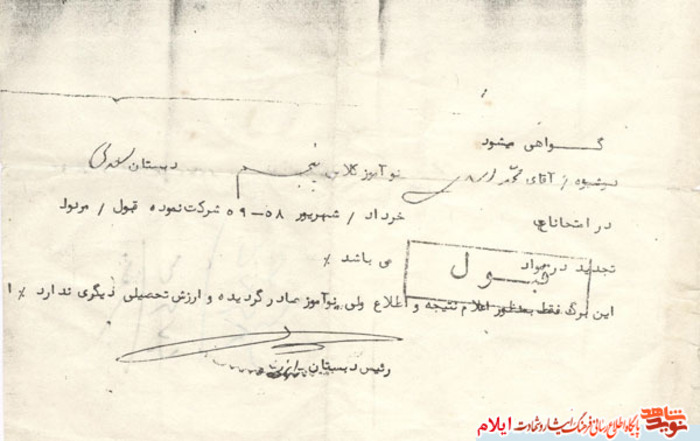 گواهی میشود
دوشیزه / آقای محمد نوآموز کلاس پنجم دبستان سعدی
در امتحانات خرداد / شهریور ۵۸–۵۹ شرکت نموده قبول / مردود
تجدید در مواد می باشد ٪
قبول
این برگ فقط بمنظور اعلام نتیجه و اطلاع ولی نوآموز صادر گردیده و ارزش تحصیلی دیگری ندارد ٪ ا
رئیس دبستان
نوید شاهد
پایگاه اطلاع رسانی فرهنگ ایثار و شهادت ایلام